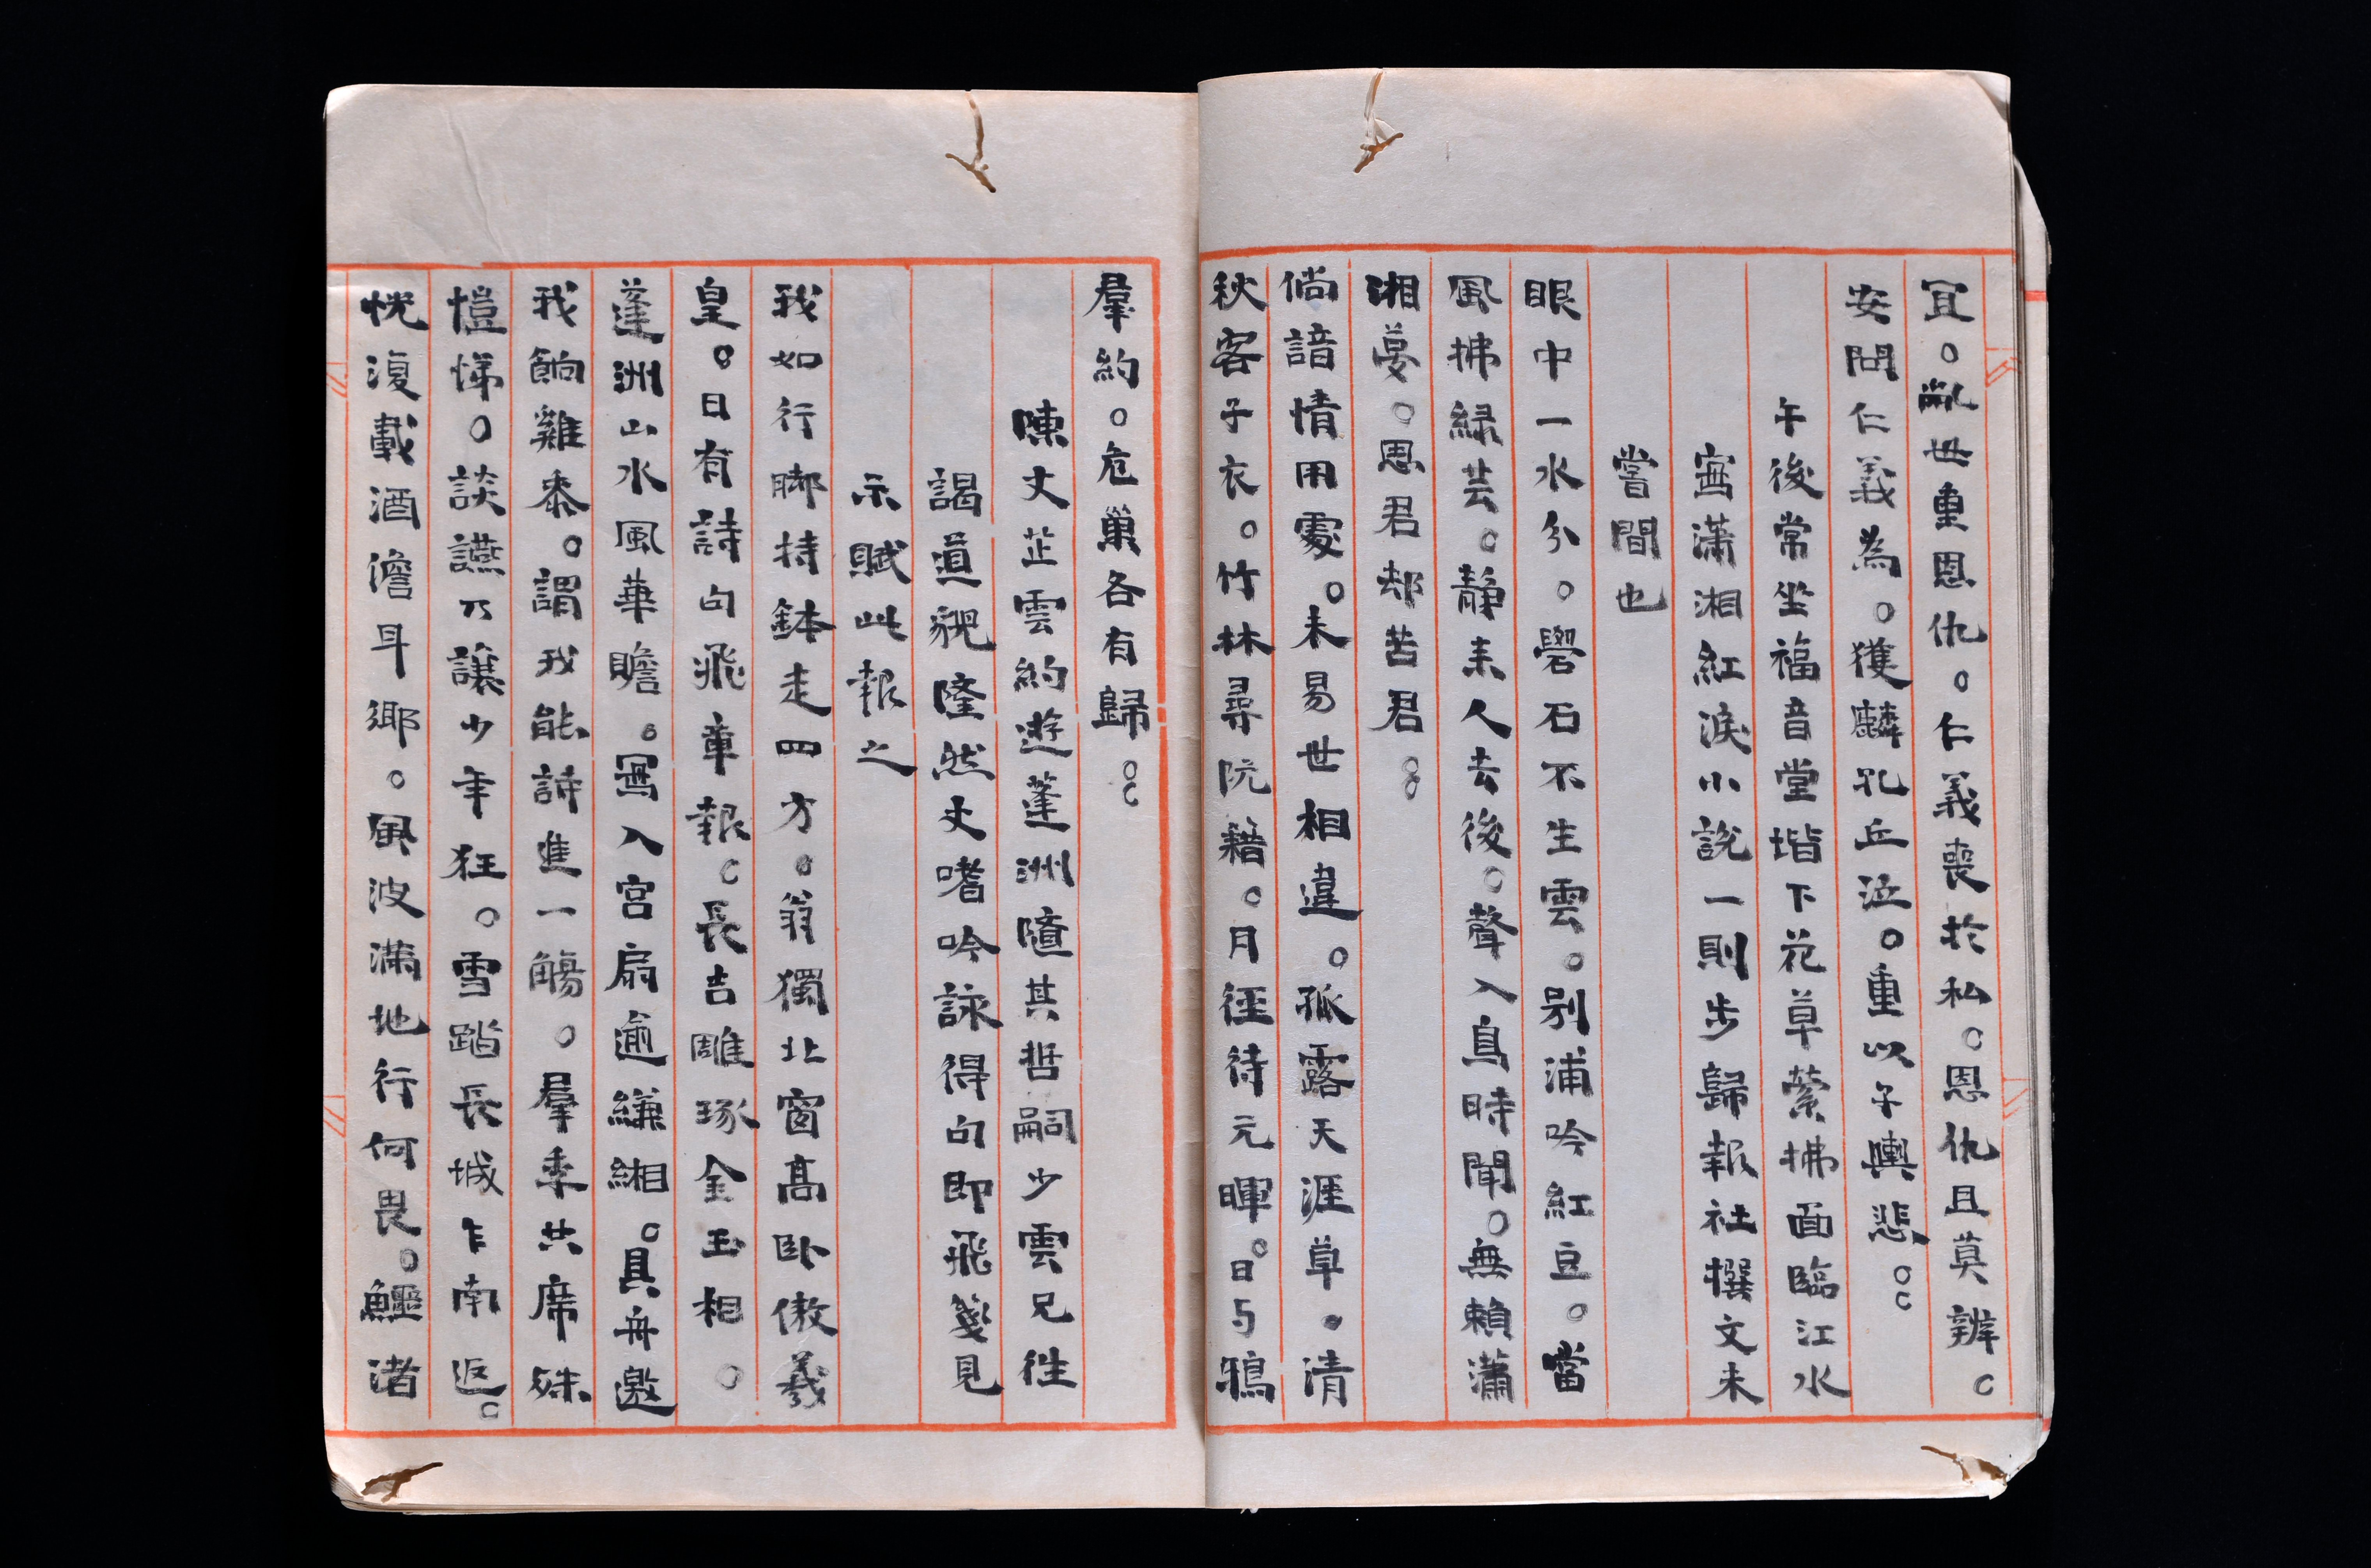 宜。亂世重恩仇。仁義喪於私。恩仇且莫辨。
安問仁義為。獲麟孔丘泣。重以予輿悲。。
午後常坐福音堂堦下花草縈拂面臨江水
寫瀟湘紅淚小說一則步歸報社撰文未
嘗間也
眼中一水分。礐石不生雲。别浦吟紅豆。當
風拂緑芸。静来人去後。聲入鳥時聞。無賴瀟
湘夢。思君却苦君。。
倘諳情用處。未易世相違。孤露天涯草。清
秋客子衣。竹林尋阮籍。月徑待元暉。日与鴉
羣約。危巢各有歸。。
陳丈芷雲約遊蓬洲隨其哲嗣少雲兄往
謁道貌隆然丈嗜吟詠得句即飛箋見
示賦此報之
我如行脚持鉢走四方。翁獨北窗髙卧傲羲
皇。日有詩句飛章報。長吉雕琢金玉相。
蓬洲山水風華贍。寫入宮扇逾縑緗。具舟邀
我餉雞黍。謂我能詩進一觴。羣季共席殊
愷悌。談讌乃讓少年狂。雪踏長城乍南返。
恍復載酒儋耳鄉。風波滿地行何畏。鱷渚